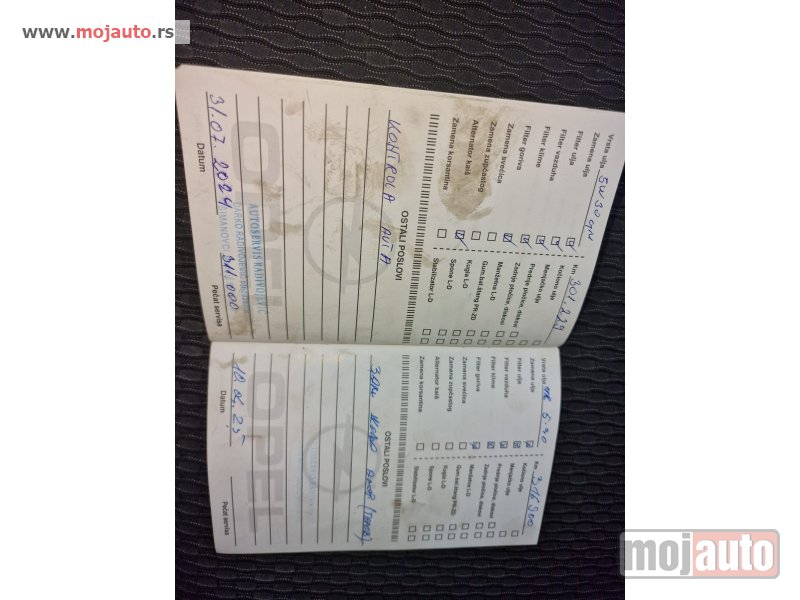 www.mojauto.rs
Vrsta ulja 5W30
Km 301.229
Zamena ulja
Filter ulja
Filter vazduha
Filter klime
Filter goriva
Zamena svećica
Zamena zupčastog
Alternator kaiš
Zamena korsantina
Kočiono ulje
Menjačko ulje
Prednje pločice, diskovi
Zadnje pločice, diskovi
Manžetna L-D
Gum.bal.štang PR-ZD
Kugla L-D
Spone L-D
Stabilizator L-D
OSTALI POSLOVI
KONTROLA AUTA
OPEL
AUTOSERVIS RADIVOJEVIĆ
31.07.2024
311.000
Datum
Pečat servisa
Vrsta ulja 5-30
Km
Zamena ulja
Filter ulja
Filter vazduha
Filter klime
Filter goriva
Zamena svećica
Zamena zupčastog
Alternator kaiš
Zamena korsantina
Kočiono ulje
Menjačko ulje
Prednje pločice, diskovi
Zadnje pločice, diskovi
Manžetna L-D
Gum.bal.štang PR-ZD
Kugla L-D
Spone L-D
Stabilizator L-D
OSTALI POSLOVI
OPEL
Datum
Pečat servisa
mojauto